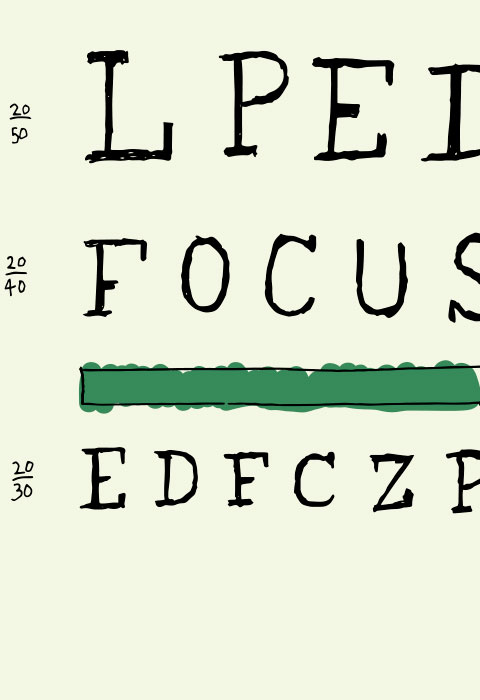 20/50 L P E D
20/40 F O C U S
20/30 E D F C Z P